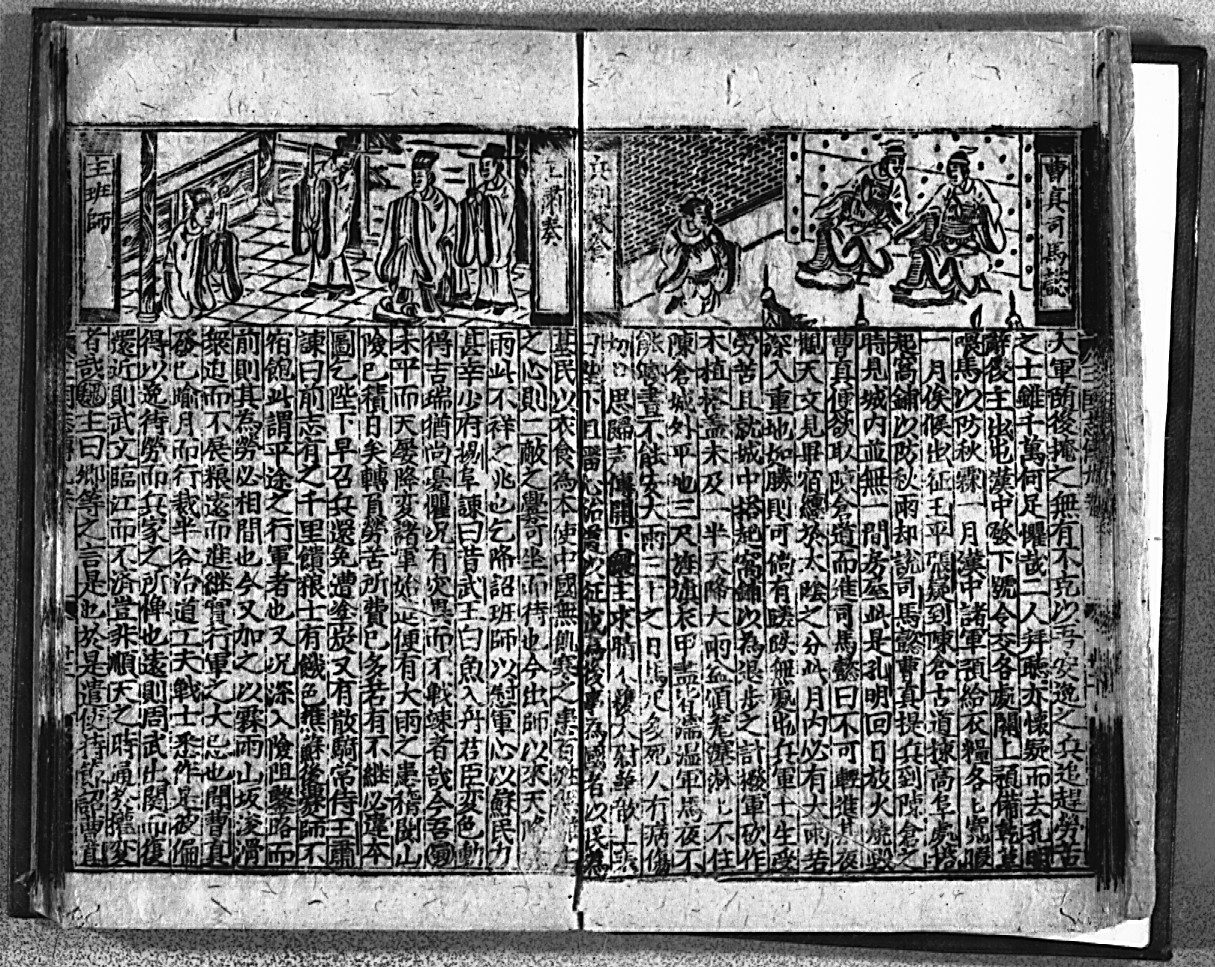 曹真司馬懿
兵到陳倉
大軍随後掩之無有不克以吾安逸之兵追趕勞苦
之士雖千萬何足懼哉二人拜聽亦懷疑而去孔明
辭後主出屯漢中發下號令交各處關上預備乾草
喂馬以防秋霖一月漢中諸軍預給衣糧各〻寬暇
一月俟候出征王平張嶷到陳倉古道揀高阜處搭
起窩鋪以防秋雨却說司馬懿曹真提兵到陳倉之
時見城內並無一間房屋此是孔明回日放火燒毀
曹真便欲取陳倉道而進司馬懿曰不可輕進某夜
觀天文見畢宿纏於太陰之分此月內必有大雨若
深入重地如勝則可倘有蹉跌無處屯兵軍士生受
勞苦且就城中搭起窩鋪以為退步之計撥軍砍作
木植搭蓋未及一半天降大雨盆傾瓮塞淋〻不住
陳倉城外平地三尺旌旗衣甲盡皆濡濕軍馬夜不
能寐晝不能安大雨三十之日馬死多死人有病傷
思歸言傳聞下魏主求晴太尉華歆上疏
曰陛下且留心治道以征伐為後事為國者以民為
王肅奏
主班師
基民以衣食為本使中國無飢寒之患百姓無離上
之心則二敵之釁可坐而待也今出師以來天降
雨此不祥之兆也乞降詔班師以慰軍心以蘇民力
甚幸少府楊阜諫曰昔武王白魚入舟君臣変色動
得吉瑞猶尚憂懼况有灾異而不戰竦者哉今吾軍
未平而天屢降変諸軍始進便有大雨之患稽閡山
險已積日矣轉負勞苦所費已多若有不継必違本
圖乞陛下早召兵還免遭塗炭又有散騎常侍王肅
諫曰前志有之千里饋糧士有饑色樵蘇後爨師不
宿飽此謂平途之行軍者也又况深入險阻鑿路而
前則其為勞必相間也今又加之以霖雨山坂浚滑
衆迫而不展粮遠而進継實行軍之大忌也聞曹真
發已踰月而行裁半谷治道工夫戰士悉作是彼偏
得以逸待勞而兵家之所憚也遠則周武出関而復
還近則武文臨江而不済豈非順天之時通於權変
者哉魏主曰卿等之言是也於是遣使持節詔曹真